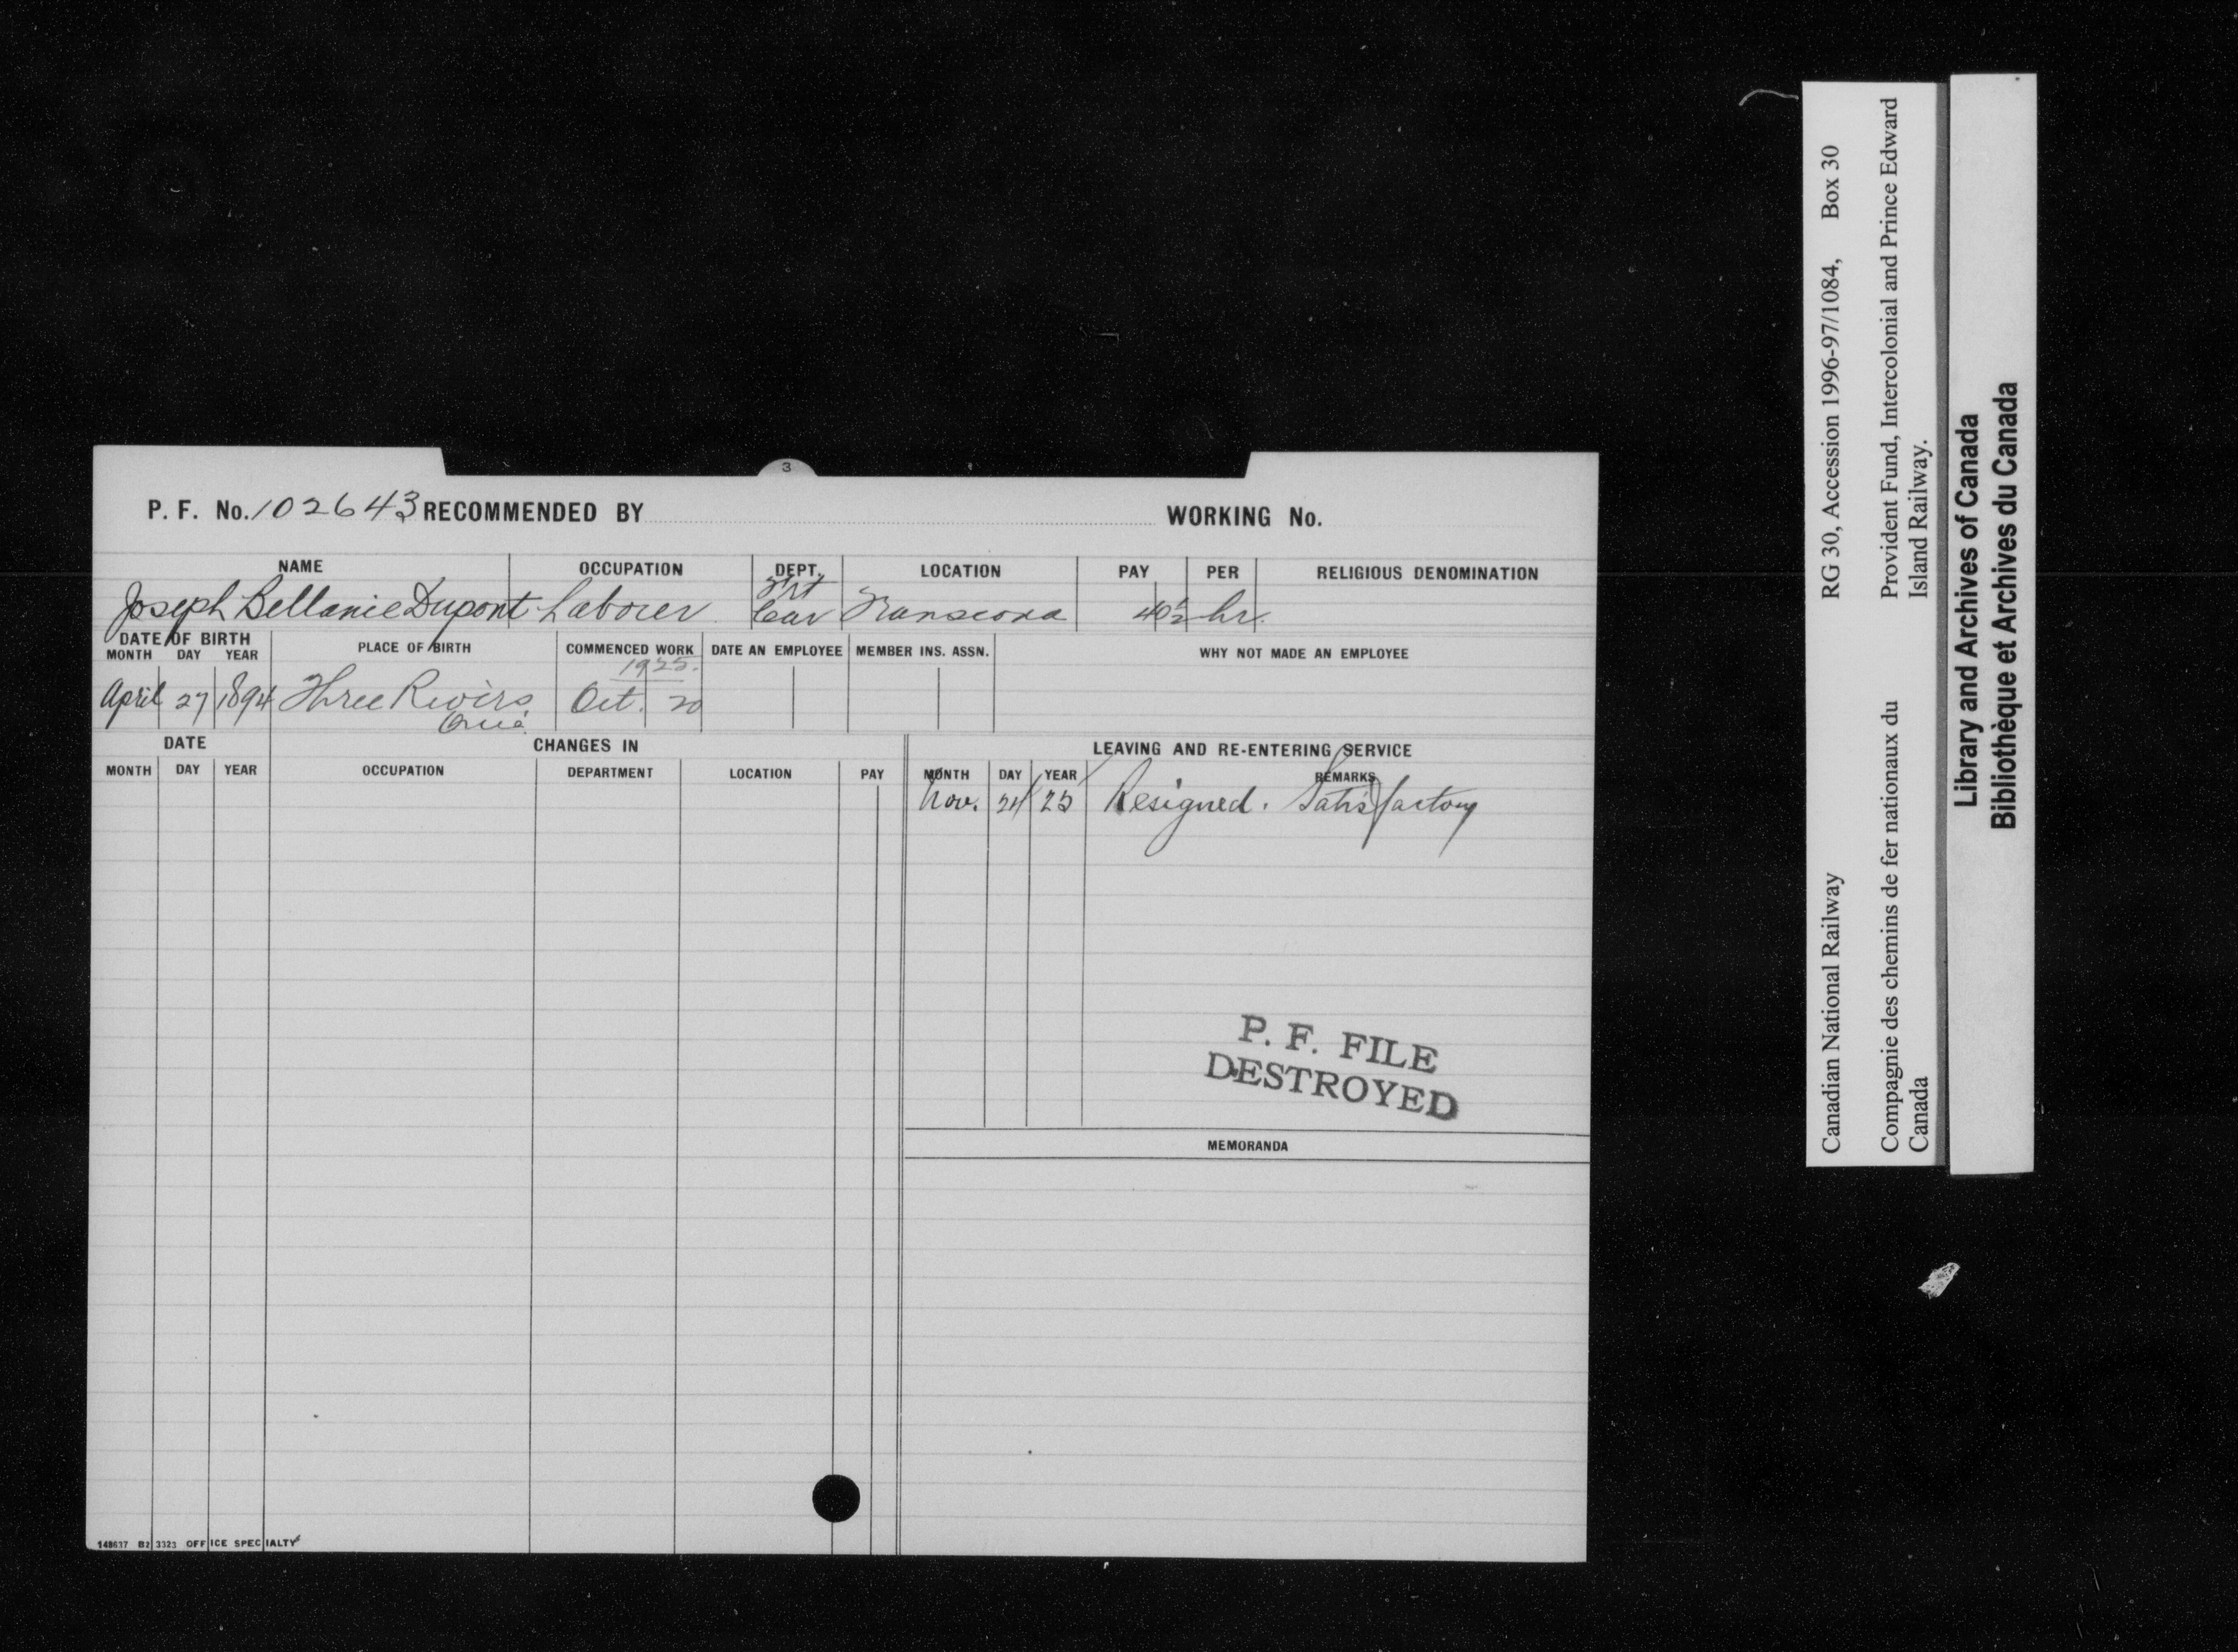 3
P. F. No. 102643 RECOMMENDED BY WORKING No.
NAME OCCUPATION DEPT. LOCATION PAY PER RELIGIOUS DENOMINATION
Joseph Bellanie Dupont Laborer Frt Car Transcona 40½ hr.
DATE OF BIRTH PLACE OF BIRTH COMMENCED WORK DATE AN EMPLOYEE MEMBER INS. ASSN. WHY NOT MADE AN EMPLOYEE
MONTH DAY YEAR
1925.
April 27 1894 Three Rivers Oct. 20
Que.
DATE CHANGES IN LEAVING AND RE-ENTERING SERVICE
MONTH DAY YEAR OCCUPATION DEPARTMENT LOCATION PAY MONTH DAY YEAR REMARKS
Nov. 24 25 Resigned. Satisfactory
P. F. FILE
DESTROYED
MEMORANDA
148637 B2 3323 OFFICE SPECIALTY
Canadian National Railway RG 30, Accession 1996-97/1084, Box 30
Compagnie des chemins de fer nationaux du Provident Fund, Intercolonial and Prince Edward
Canada Island Railway.
Library and Archives of Canada
Bibliothèque et Archives du Canada